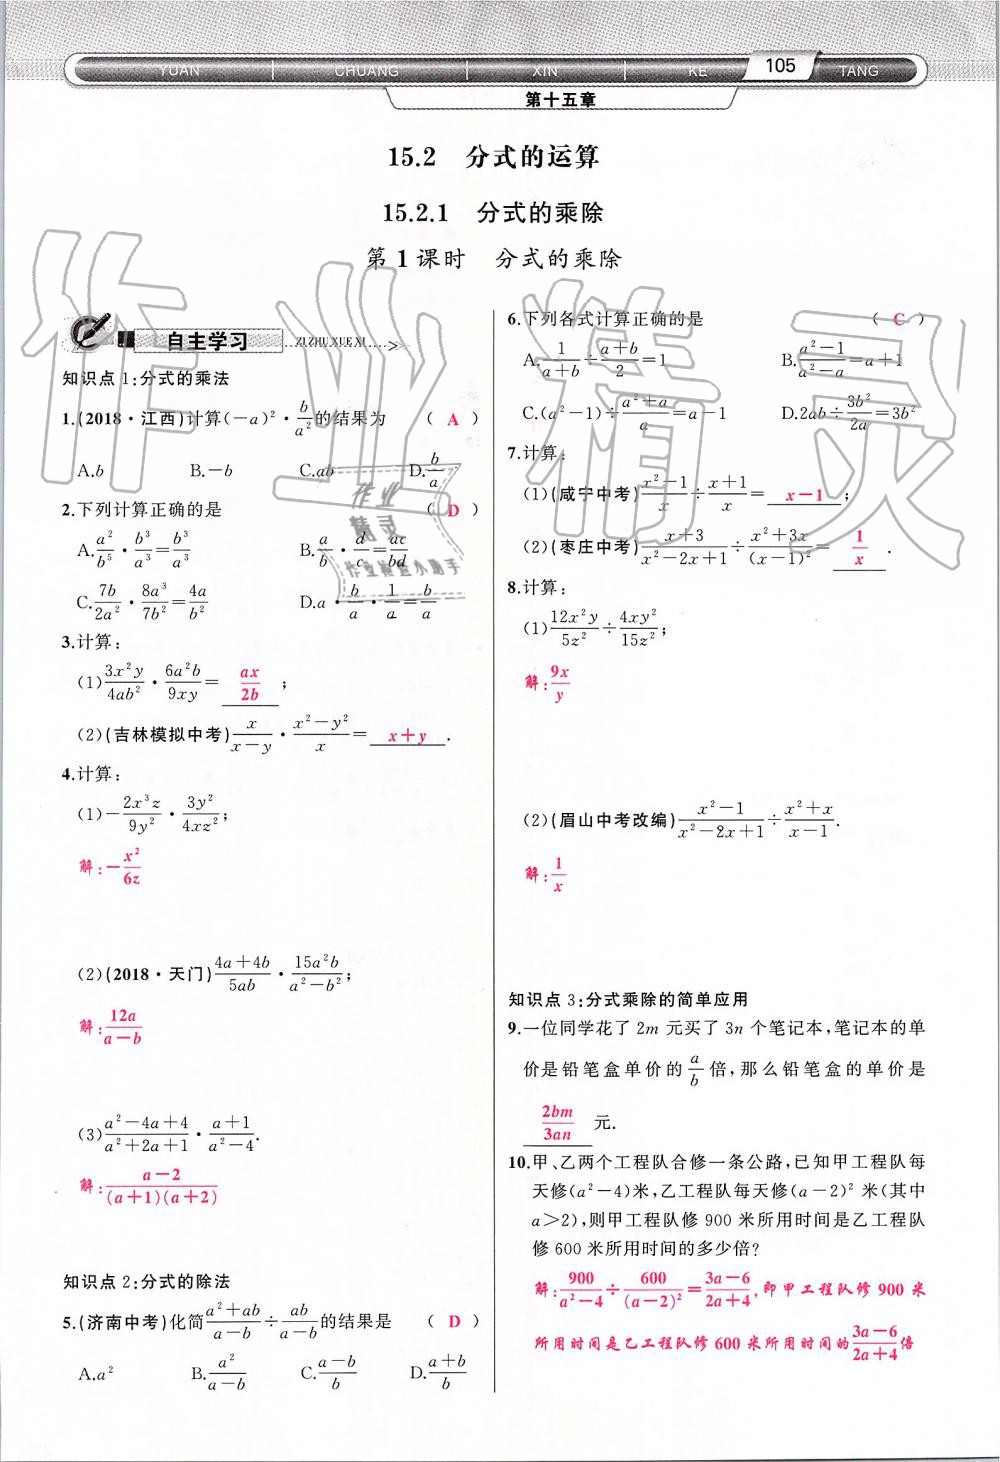 YUAN CHUANG XIN KE 105 TANG
第十五章
15.2 分式的运算
15.2.1 分式的乘除
第1课时 分式的乘除
自主学习 ZIZHU XUEXI
知识点1:分式的乘法
1.(2018·江西)计算(-a)²·b/a²的结果为 ( A )
A.b B.-b C.ab D.b/a
2.下列计算正确的是 ( D )
A.a²/b⁵·b³/a³=b³/a³ B.a/b·d/c=ac/bd
C.7b/2a²·8a³/7b²=4a/b² D.a·b/a·1/a=b/a
3.计算:
(1)3x²y/4ab²·6a²b/9xy=ax/2b;
(2)(吉林模拟中考)x/(x-y)·(x²-y²)/x=x+y.
4.计算:
(1)-2x³z/9y²·3y²/4xz²;
解:-x²/6z
(2)(2018·天门)(4a+4b)/5ab·15a²b/(a²-b²);
解:12a/(a-b)
(3)(a²-4a+4)/(a²+2a+1)·(a+1)/(a²-4).
解:(a-2)/((a+1)(a+2))
知识点2:分式的除法
5.(济南中考)化简(a²+ab)/(a-b)÷ab/(a-b)的结果是 ( D )
A.a² B.a²/(a-b) C.(a-b)/b D.(a+b)/b
6.下列各式计算正确的是 ( C )
A.1/(a+b)÷(a+b)/2=1 B.(a²-1)/(a²-a)=a+1
C.(a²-1)÷(a²+a)/a=a-1 D.2ab÷3b²/2a=3b²
7.计算:
(1)(咸宁中考)(x²-1)/x÷(x+1)/x=x-1;
(2)(枣庄中考)(x+3)/(x²-2x+1)÷(x²+3x)/(x-1)²=1/x.
8.计算:
(1)12x²y/5z²÷4xy²/15z²;
解:9x/y
(2)(眉山中考改编)(x²-1)/(x²-2x+1)÷(x²+x)/(x-1).
解:1/x
知识点3:分式乘除的简单应用
9.一位同学花了2m元买了3n个笔记本,笔记本的单
价是铅笔盒单价的a/b倍,那么铅笔盒的单价是
2bm/3an元.
10.甲、乙两个工程队合修一条公路,已知甲工程队每
天修(a²-4)米,乙工程队每天修(a-2)²米(其中
a>2),则甲工程队修900米所用时间是乙工程队
修600米所用时间的多少倍?
解:900/(a²-4)÷600/(a-2)²=(3a-6)/(2a+4),即甲工程队修900米
所用时间是乙工程队修600米所用时间的(3a-6)/(2a+4)倍
作业精灵
作业精灵
作业检查小助手